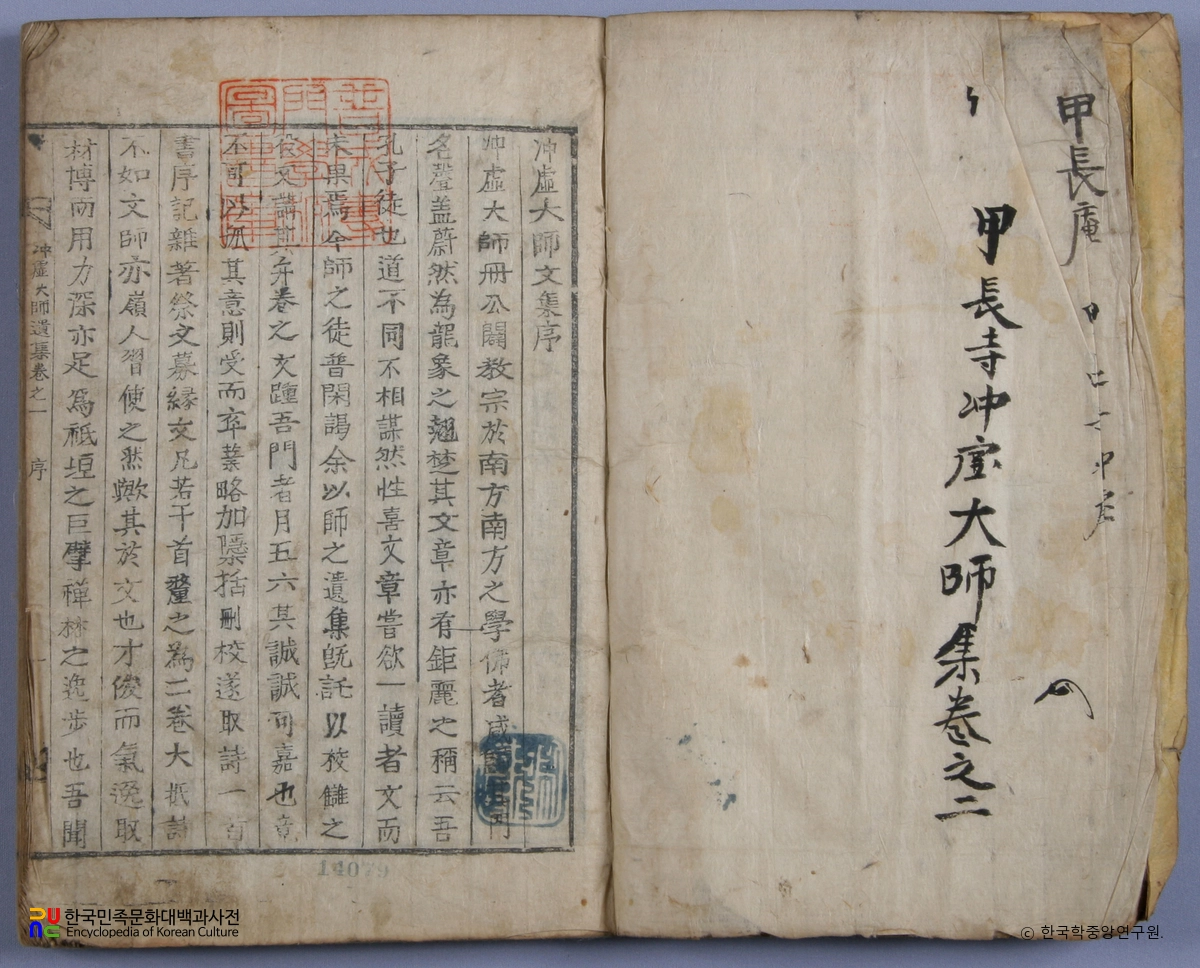 甲長庵
甲長寺冲虛大師集卷之二
冲虛大師文集序
冲虛大師冊公闡教宗於南方南方之學佛者咸
名聲盖蔚然為龍象之翹楚其文章亦有鉅麗之稱云吾
孔子徒也道不同不相謀然性喜文章嘗欲一讀者文而
未果焉今師之徒普閑謁余以師之遺集旣託以校讎之
役文講其弁卷之文踵吾門者月五六其誠誠可嘉也竟
不可以孤其意則受而卒業略加檃括刪校遂取詩一百
書序記雜著祭文募緣文凡若干首釐之為二卷大抵詩
不如文師亦嶺人習使之然歟其於文也才俊而氣逸取
材博而用力深亦足為祗垣之巨擘禪林之逸步也吾聞
冲虛大師遺集卷之一
序
一
14079
한국민족문화대백과사전
Encyclopedia of Korean Culture
ⓒ 한국학중앙연구원.